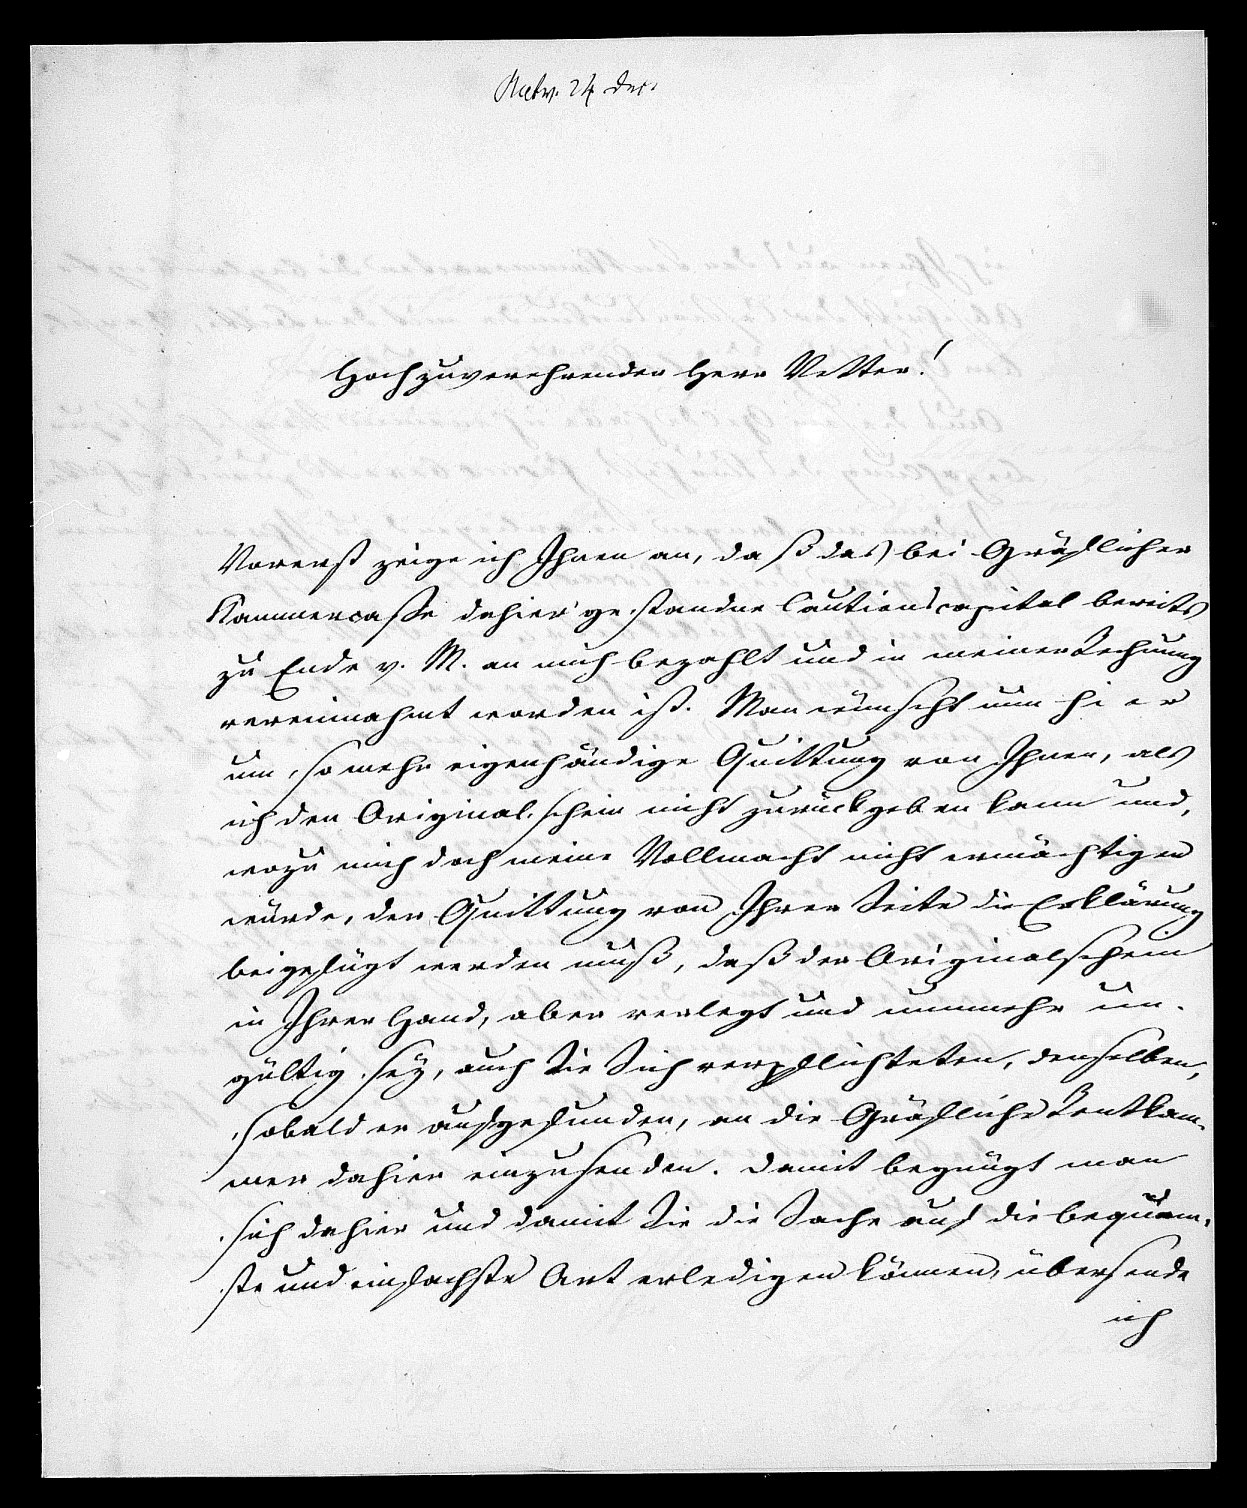 Antw. 24 Dec.
Hochzuverehrender Herr Vetter!
Vorerst zeige ich Ihnen an, daß das bei Gräflicher
Kammercasse dahier gestandne Cautionscapital bereits
zu Ende v. M. an mich bezahlt und in meiner Rechnung
vereinnahmt worden ist. Man wünscht nun hier
um so mehr eigenhändige Quittung von Ihnen, als
ich den Originalschein nicht zurückgeben kann und,
wozu mich doch meine Vollmacht nicht ermächtigen
würde, der Quittung von Ihrer Seite die Erklärung
beigefügt werden muß, daß der Originalschein
in Ihrer Hand, aber verlegt und nunmehr un-
gültig sey, auch Sie Sich verpflichteten, denselben,
sobald er aufgefunden, an die Gräfliche Rentkam-
mer dahier einzusenden. Damit begnügt man
sich dahier und damit Sie die Sache auf die bequem-
ste und einfachste Art erledigen können, übersende
ich